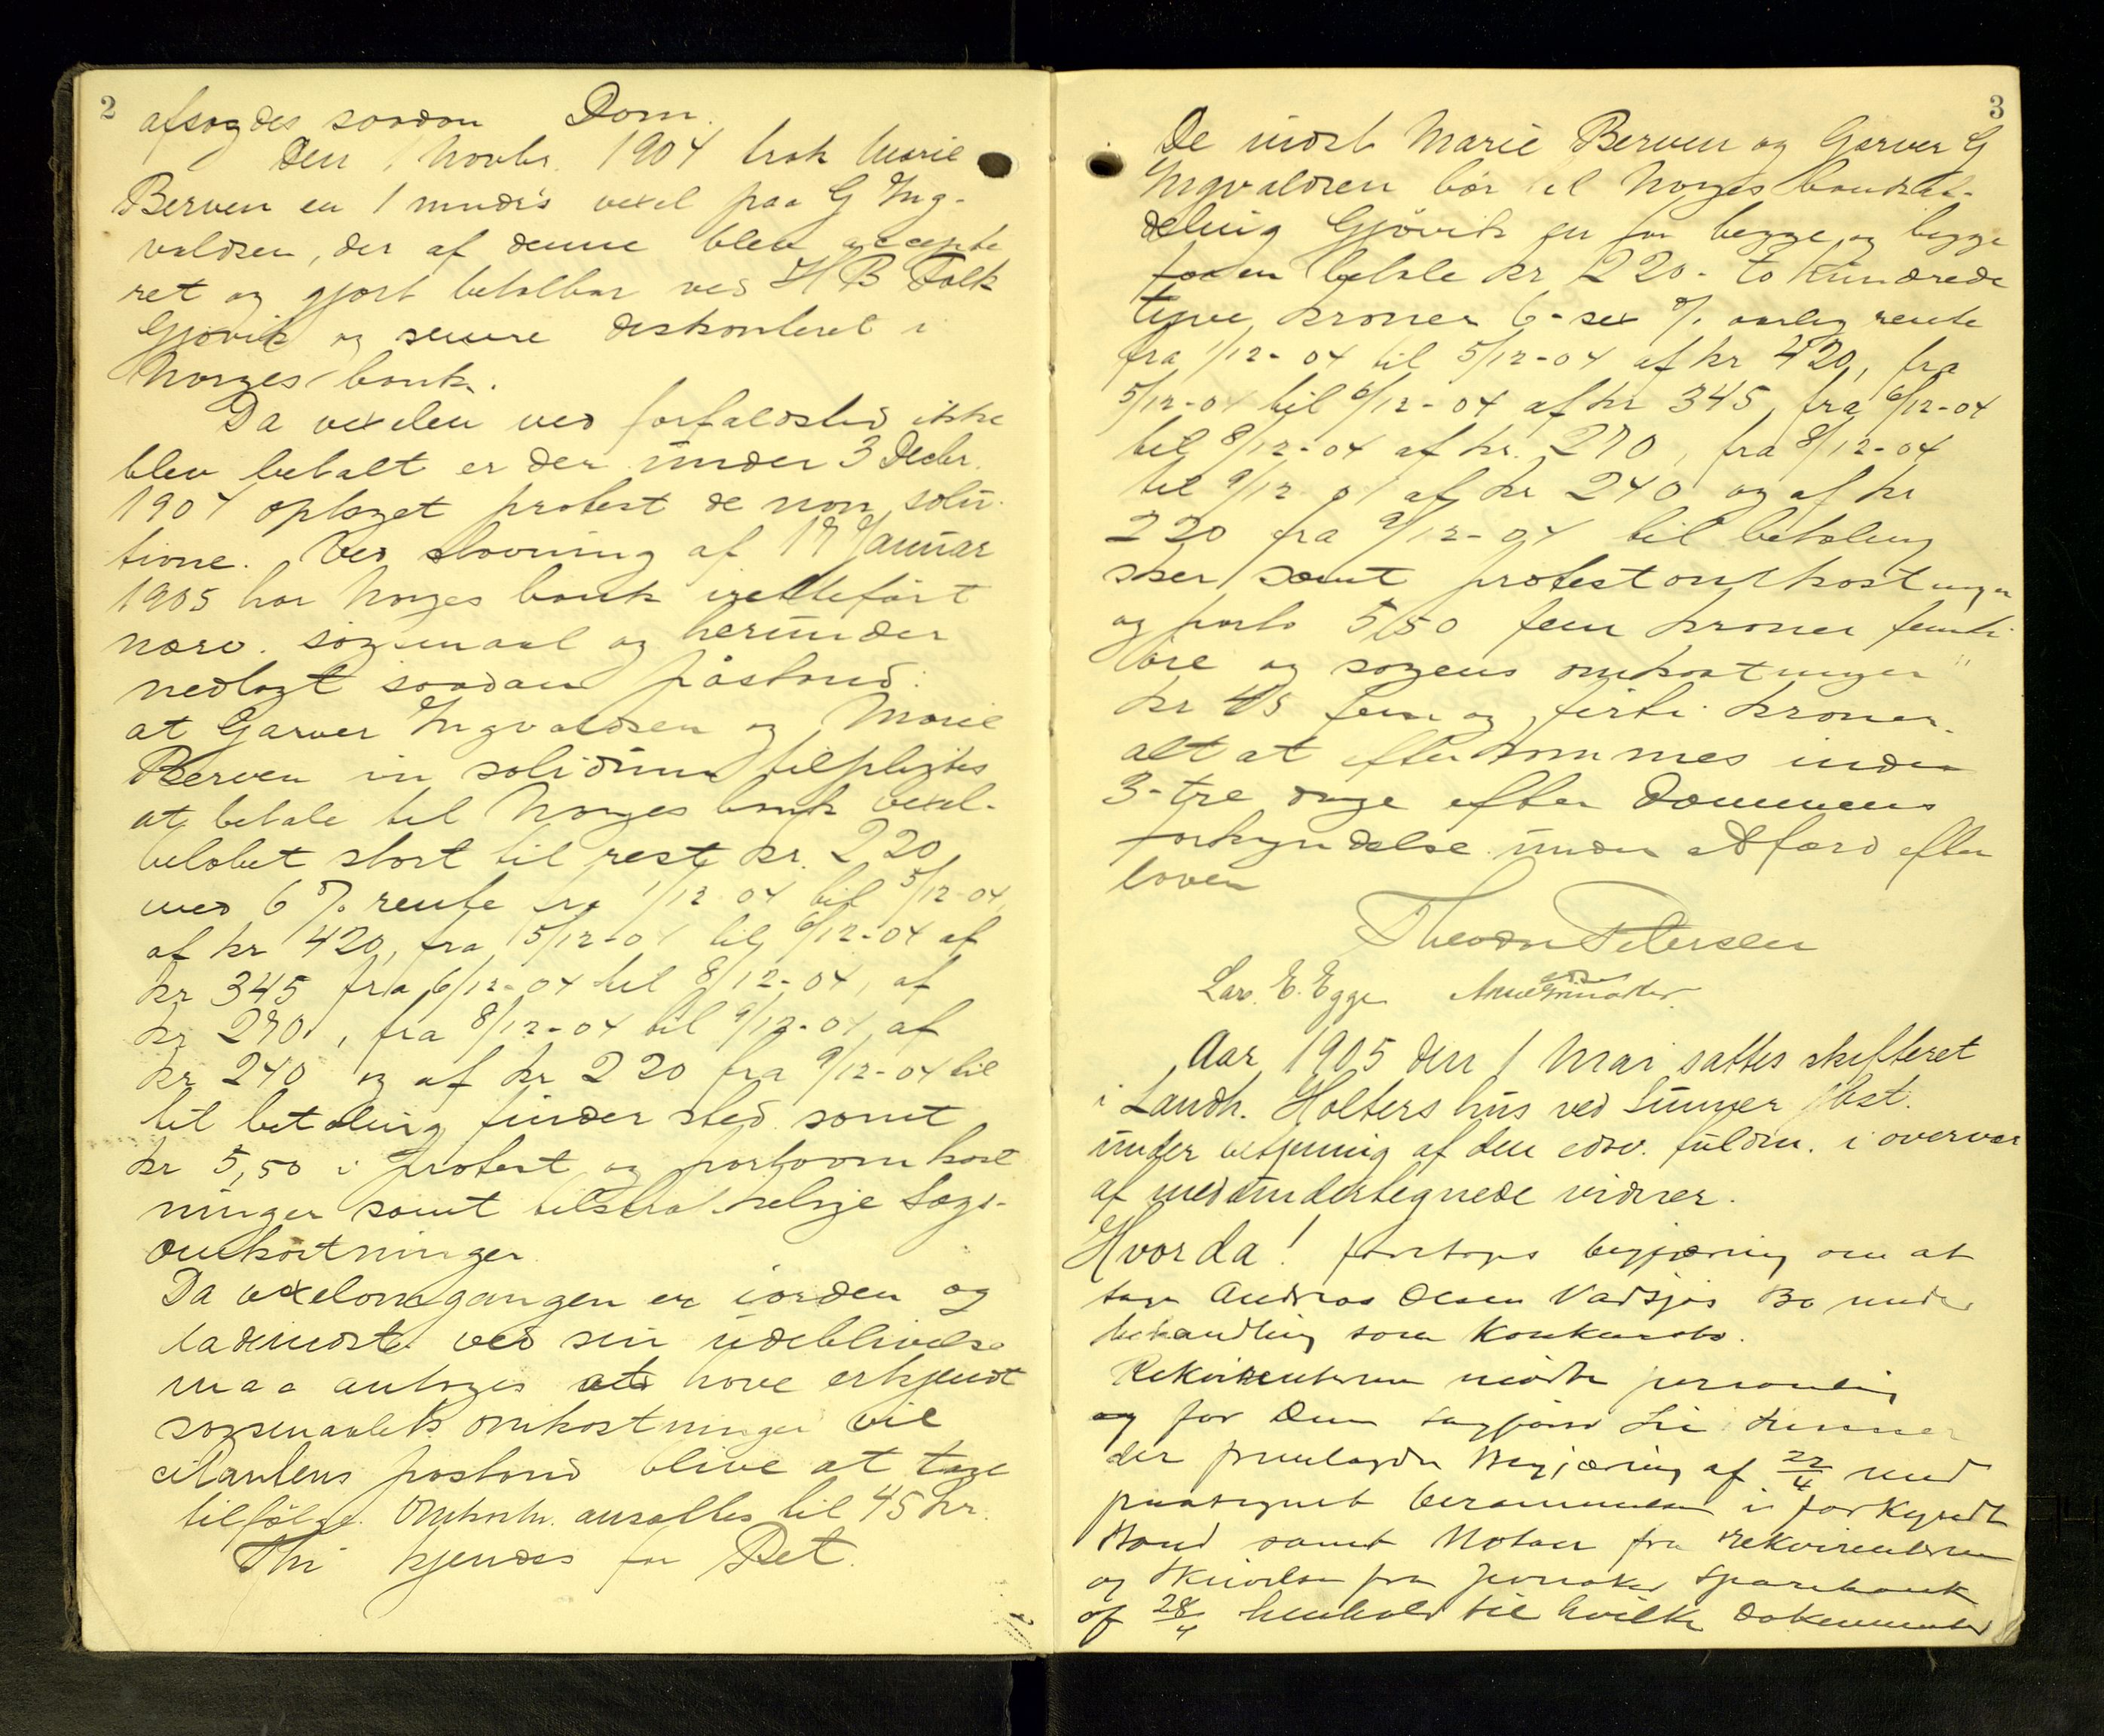 2
afsagdes saadan Dom.
Den 1 Novbr. 1904 trak Marie
Berven en 1 mnds vexel paa G Ing-
valdsen, der af denne blev accepte
ret og gjort betalbar ved H B Falk
Gjøvik og senere diskonteret i
Norges bank.
Da vexelen ved forfaldstid ikke
blev betalt er der under 3 Decbr.
1904 optaget protest de non solu-
tione. Ved stævning af 17 Januar
1905 har Norges bank irettefört
nærv. sögsmaal og herunder
nedlagt saadan påstand:
at Garver Ingvaldsen og Marie
Berven in solidum tilpligtes
at betale til Norges bank vexel-
beløbet stort til rest kr. 220
med 6 % rente fra 1/12 04 til 5/12-04,
af kr 420, fra 5/12-04 til 6/12-04 af
kr 345 fra 6/12-04 til 8/12-04, af
kr 270, fra 8/12-04 til 9/12-04, af
kr 240 og af kr 220 fra 9/12-04 til
til betaling finder sted samt
kr 5,50 i protest og portoomkost
ninger samt tilstrækkelige Sags-
omkostninger
Da vexelomgangen er iorden og
indstvnte ved sin udeblivelse
maa antages at have erkjendt
sögsmaalets omkostninger vil
citantens påstand blive at tage
tilfölge. Omkostn. ansættes til 45 kr.
Thi kjendes for Ret.
3
De indst. Marie Berven og Garver G
Ingvaldsen bör til Norges bank af-
deling Gjövik en for begge og begge
for en betale kr 220 - to hundrede
tyve kroner 6 - sex % aarlig rente
fra 1/12-04 til 5/12-04 af kr 420, fra
5/12-04 til 6/12-04 af kr 345, fra 6/12-04
til 8/12-04 af kr. 270, fra 8/12-04
til 9/12 04 af kr 240 og af kr
220 fra 9/12-04 til betaling
sker samt protestomkostninger
og porto 5,50 fem kroner femti
öre og sagens omkostninger
kr 45 fem og firti kroner.
alt at efterkommes inden
3 - tre dage efter Dommens
forkyndelse under adfærd efter
loven
Theodor Petersen
Lars. E. Egge
Aar 1905 den 1 Mai sattes skifteret
i Landh. Holters hus ved Einner st.
under betjening af den edsv. fuldm. i overvær
af medundertegnede vidner.
Hvorda! foretoges begjæring om at
tage Andreas Olsen Vadsjøs Bo under
behandling som Konkursbo.
Rekvirenterne mødte personlig
og for Dem Sagfører
der fremlagde Begjæring af 22/4 med
paategnet berammelse i forkyndt
Stand samt Notaer fra Rekvirenterne
og Skrivelse fra Sparebank
af 28/4 henhold til hvilke Dokumenter